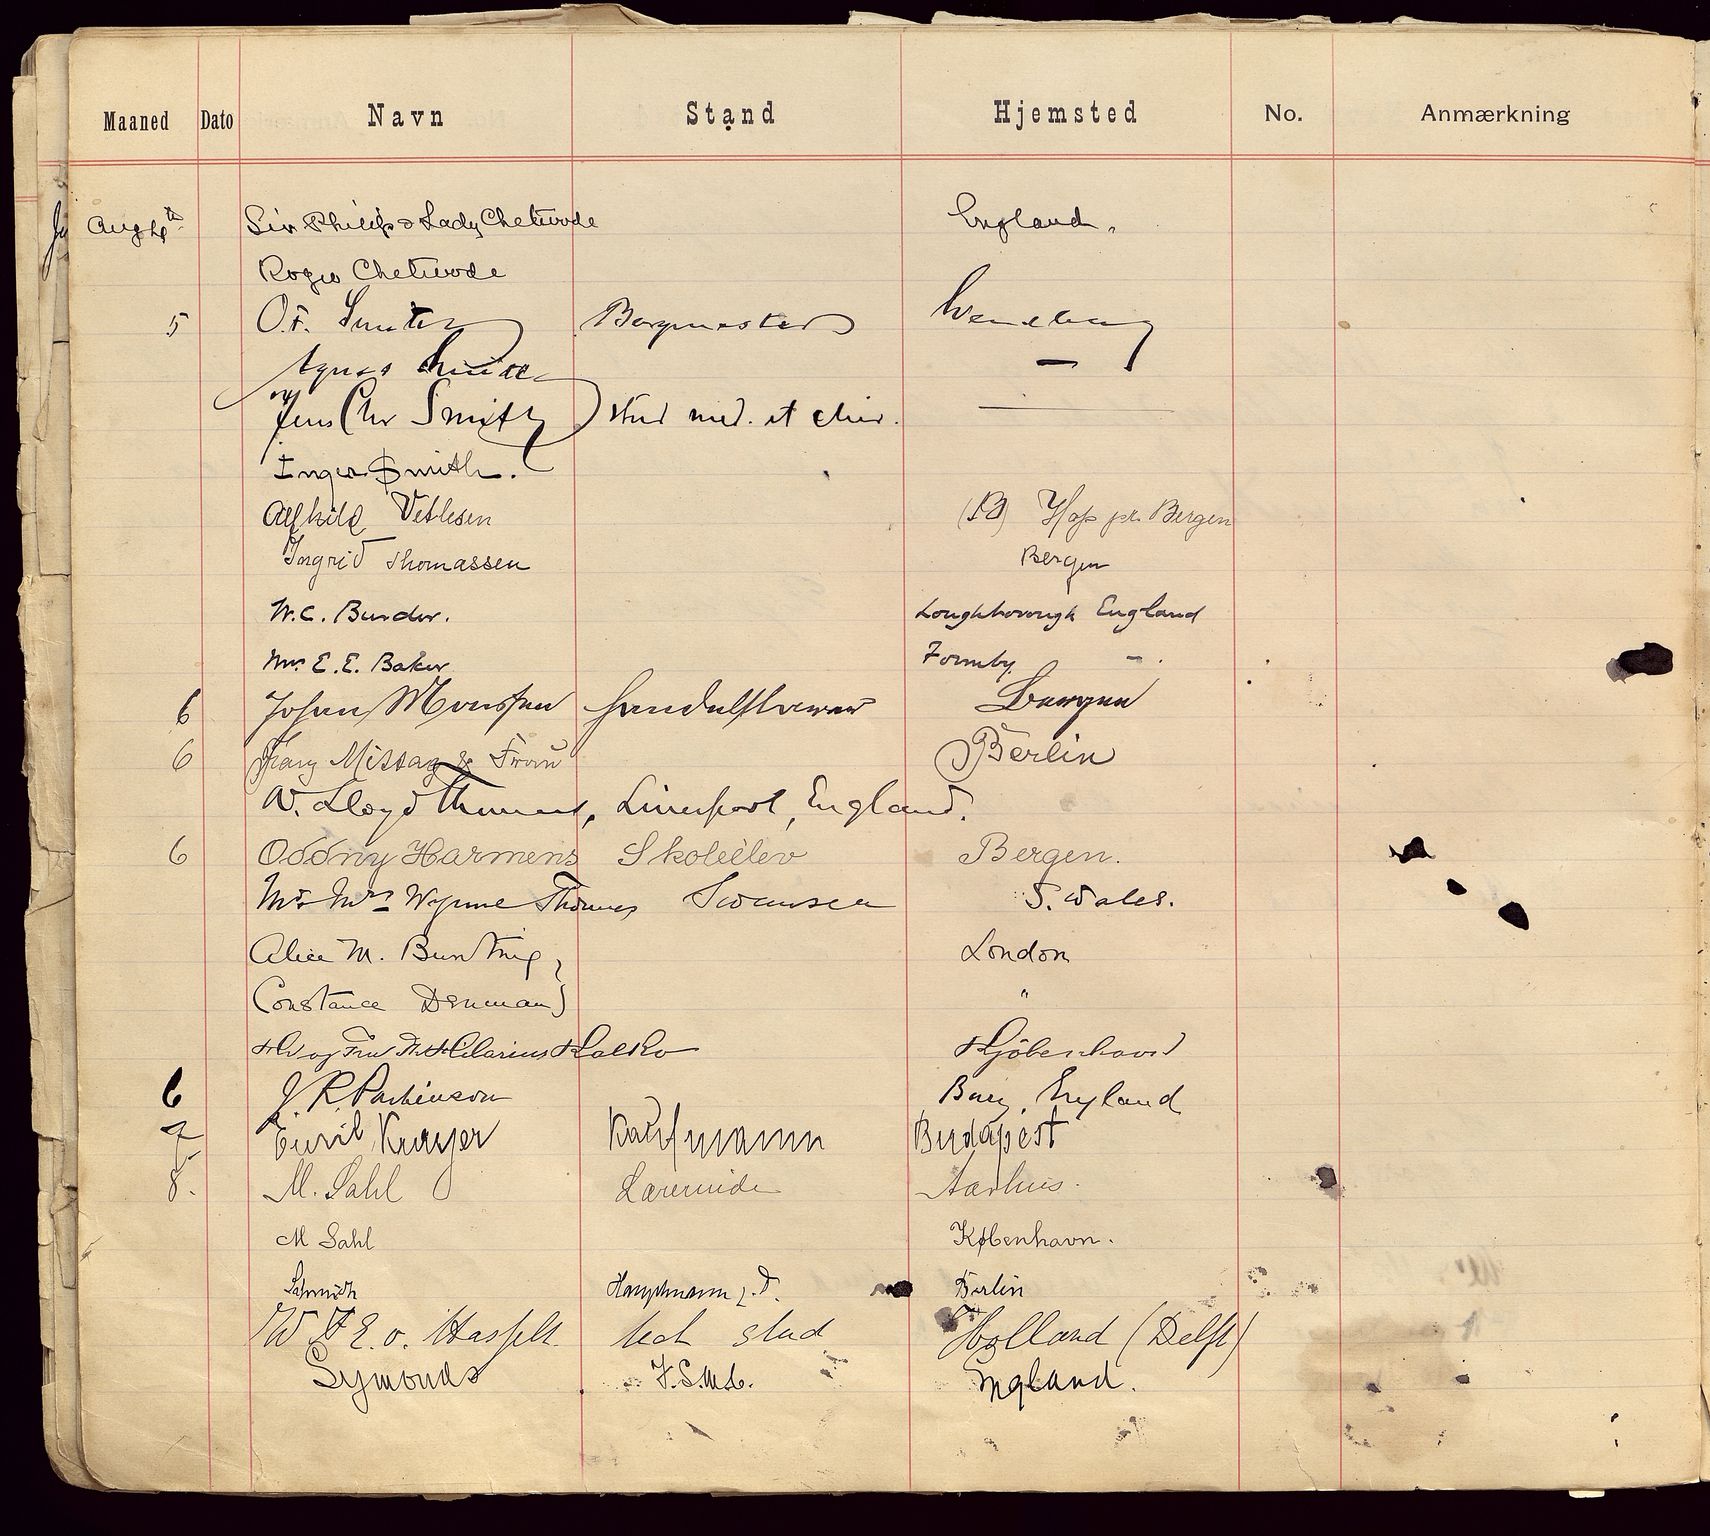 Maaned Dato Navn Stand Hjemsted No. Anmærkning
Aug 4th Sir Philip & Lady Chetwode England.
Roger Chetwode
5 O.F. Borgmester
Agnes —
Jens Chr Smith stud med. et chir. —
Inger Smith.
Alfhild Vetlesen (B) Hop pr. Bergen
Ingrid Thomassen Bergen
W.C. Burder. Loughborough England
Mrs E. E. Baker Formby. - .
6 Johan Monssen Bergen
6 Franz Mittag & Frau Berlin
W. Lloyd Thomas, Liverpool, England.
6 Oddny Harmens Skoleelev Bergen.
Mr. Mrs Wynne Thomas Swansea S. Wales.
Alice M. Bunting, London
Constance Denman "
Hr og Fru Hilarius Kalko Kjöbenhavn
6 J. R. Parkinson Bury, England
7 Emil Kaufmann Budapest
8. M. Sahl Lærerinde Aarhus.
M Sahl København.
Schmidt Hauptmann z. D. Berlin
W F E. v. Hasselt. tech stud Holland (Delft)
Symonds England.